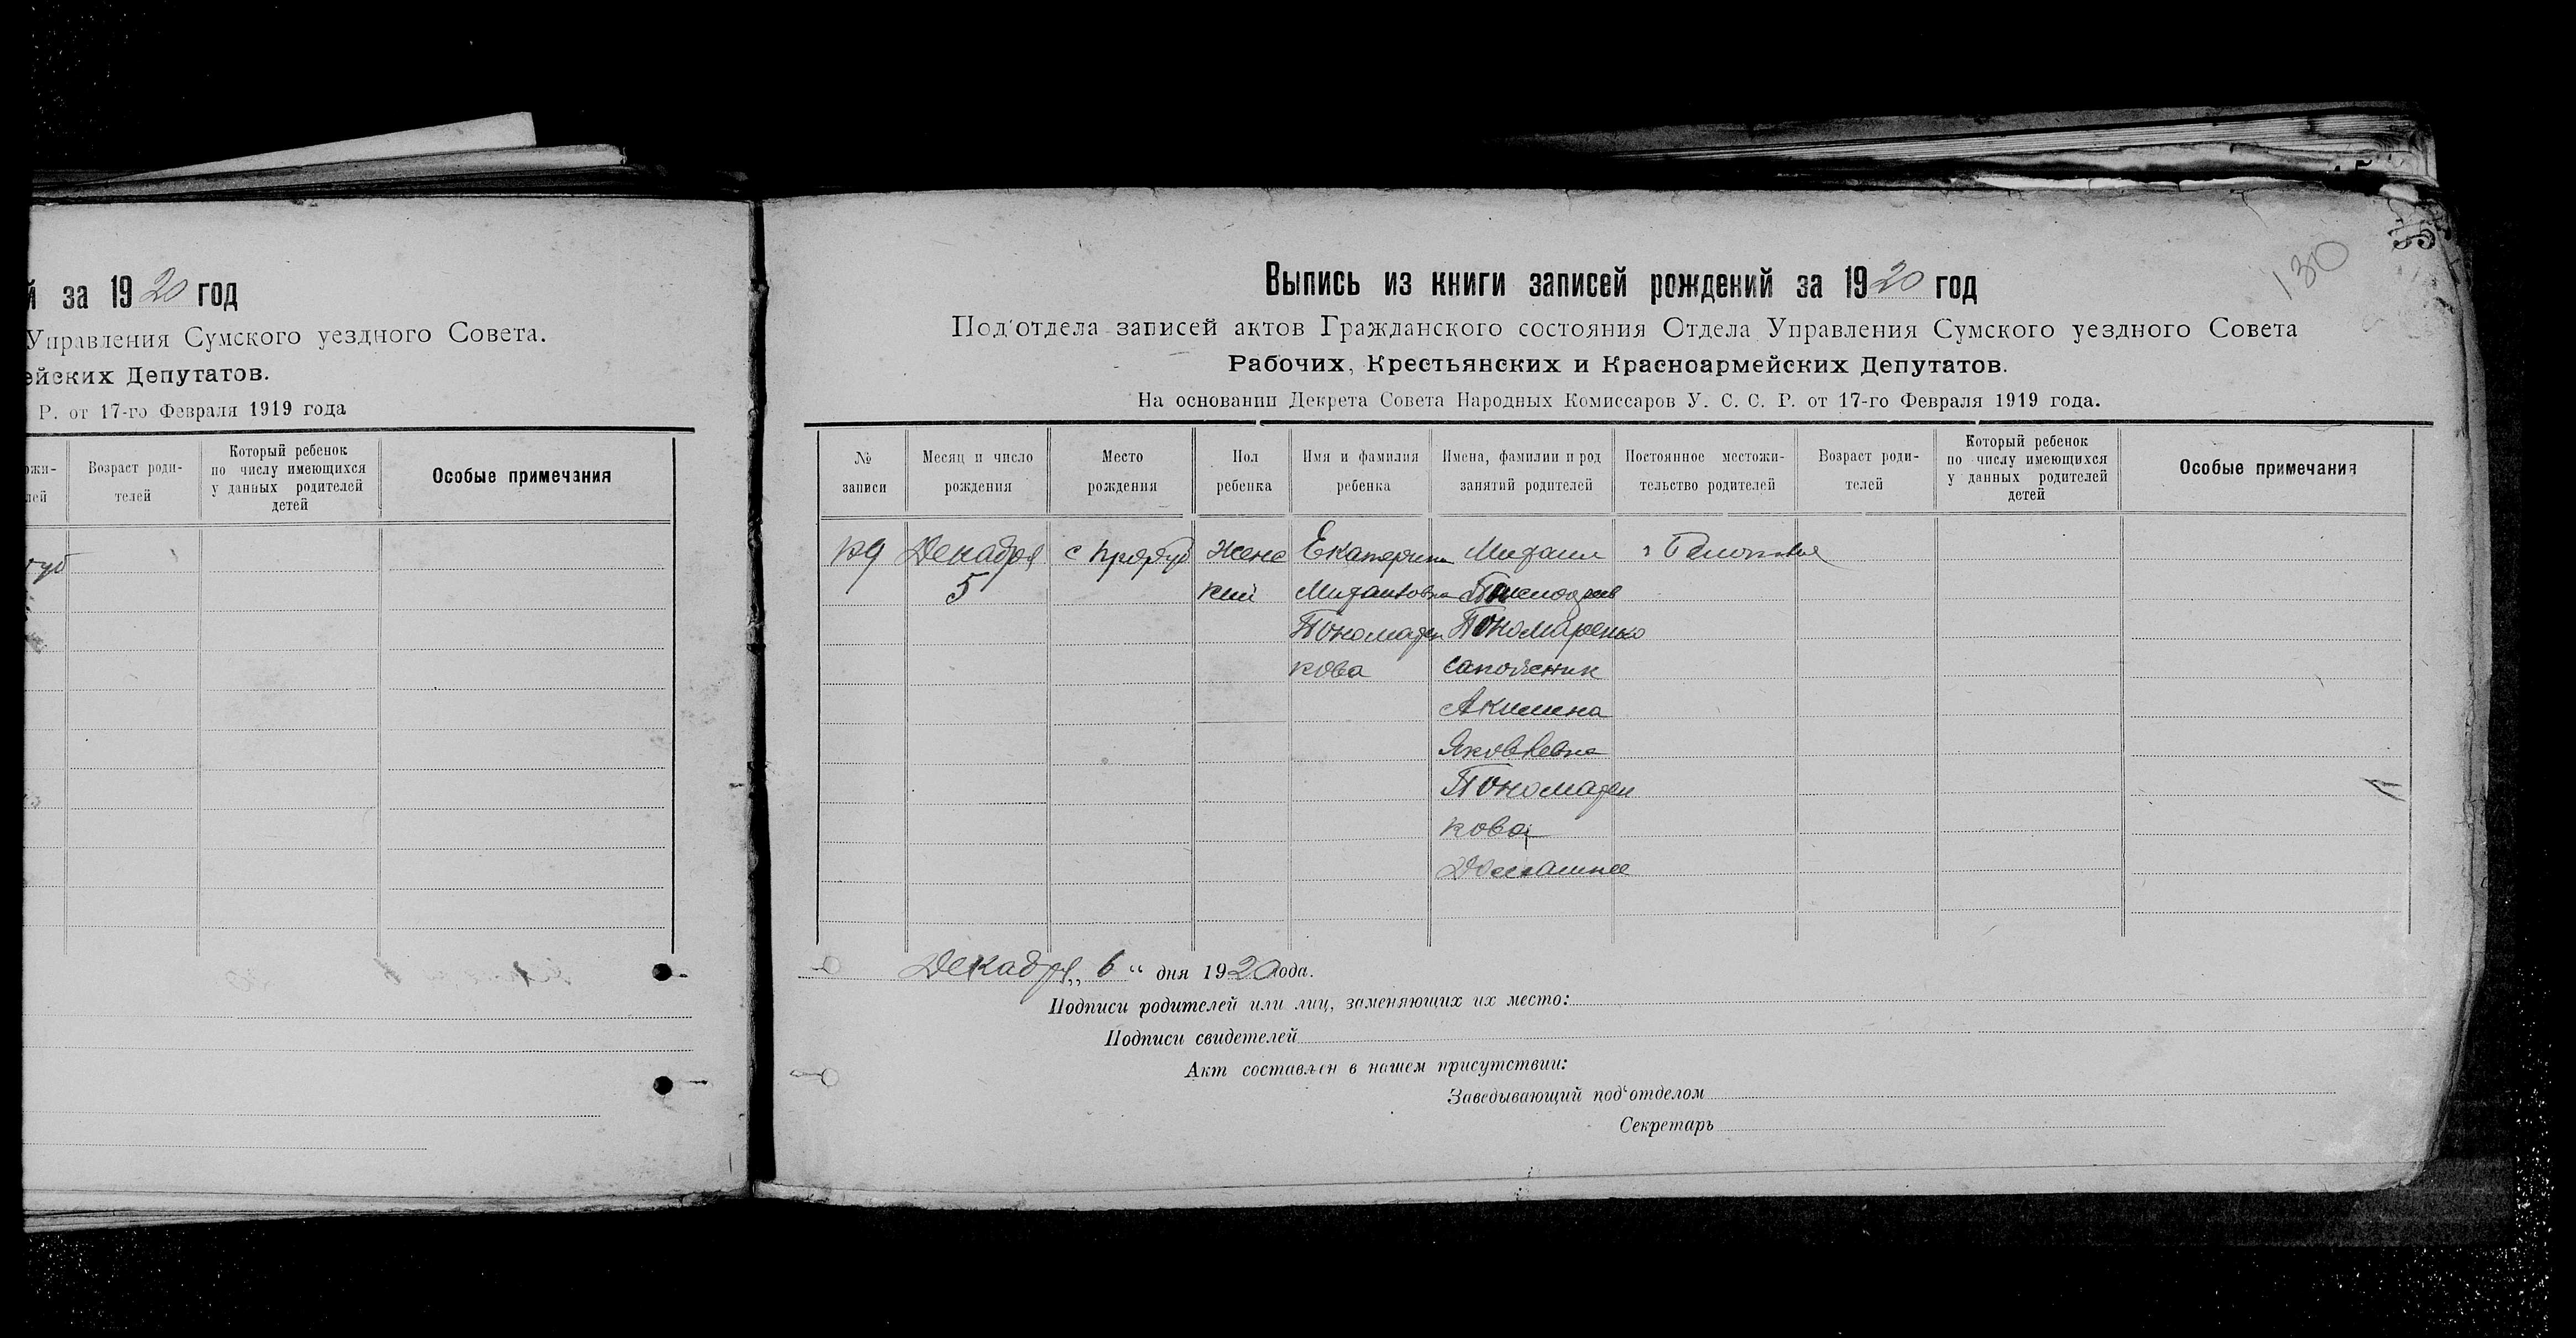 й за 1920 год
Управления Сумского уездного Совета.
ейских Депутатов.
Р. от 17-го Февраля 1919 года
ожи-
лей
Возраст роди-
телей
Который ребенок
по числу имеющихся
у данных родителей
детей
Особые примечания
130
Выпись из книги записей рождений за 1920 год
Под'отдела записей актов Гражданского состояния Отдела Управления Сумского уездного Совета
Рабочих, Крестьянских и Красноармейских Депутатов.
На основании Декрета Совета Народных Комиссаров У. С. С. Р. от 17-го Февраля 1919 года.
№
записи
Месяц и число
рождения
Место
рождения
Пол
ребенка
Имя и фамилия
ребенка
Имена, фамилии и род
занятий родителей
Постоянное местожи-
тельство родителей
Возраст роди-
телей
Который ребенок
по числу имеющихся
у данных родителей
детей
Особые примечания
129
Декабря
5
с Проруб
Женс
кий
Екатерина
Михайловна
Пономарен
кова
Михаил
Пономаренко
сапожник
Акилина
Яковлевна
Пономарен
кова
Домашнее
Декабря „ 6 “ дня 1920 года.
Подписи родителей или лиц, заменяющих их место:
Подписи свидетелей
Акт составлен в нашем присутствии:
Заведывающий под'отделом
Секретарь